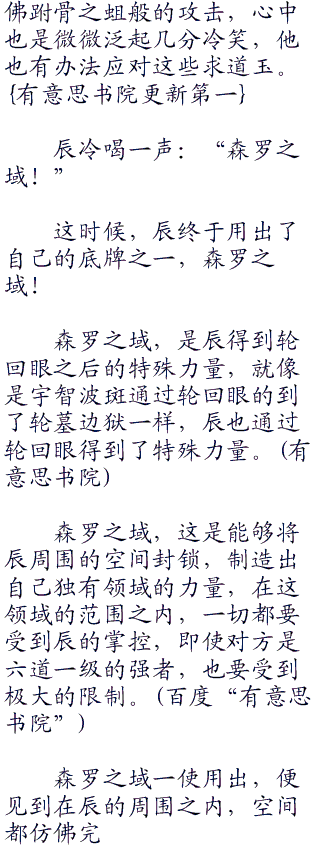 佛跗骨之蛆般的攻击，心中
也是微微泛起几分冷笑，他
也有办法应对这些求道玉。
{有意思书院更新第一}
辰冷喝一声：“森罗之
域！”
这时候，辰终于用出了
自己的底牌之一，森罗之
域！
森罗之域，是辰得到轮
回眼之后的特殊力量，就像
是宇智波斑通过轮回眼的到
了轮墓边狱一样，辰也通过
轮回眼得到了特殊力量。(有
意思书院)
森罗之域，这是能够将
辰周围的空间封锁，制造出
自己独有领域的力量，在这
领域的范围之内，一切都要
受到辰的掌控，即使对方是
六道一级的强者，也要受到
极大的限制。(百度“有意思
书院”)
森罗之域一使用出，便
见到在辰的周围之内，空间
都仿佛完